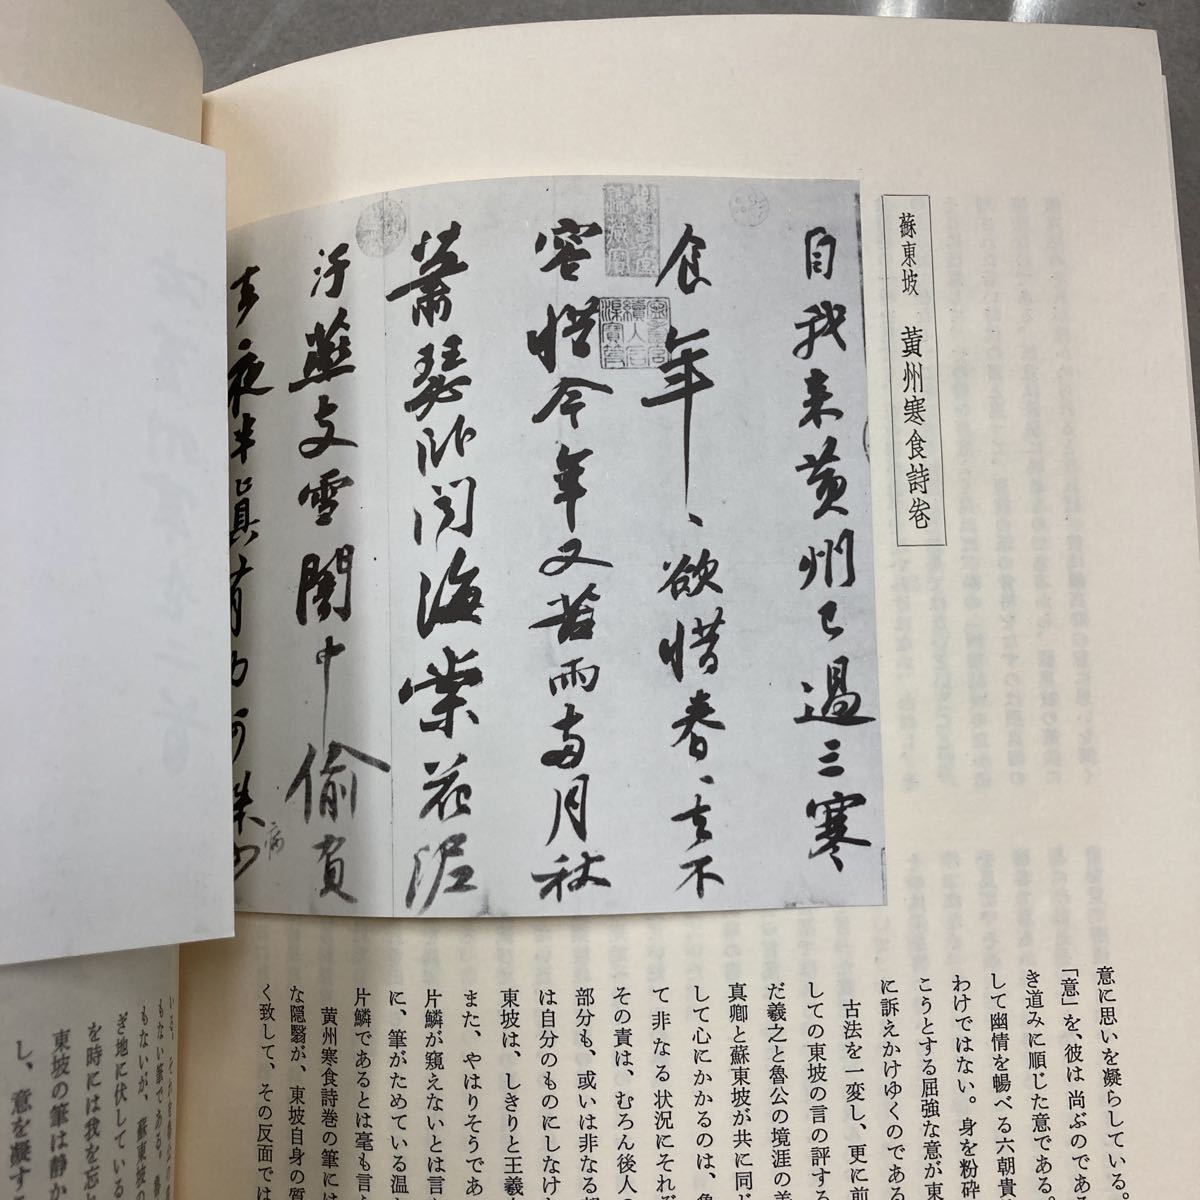 蘇東坡 黄州寒食詩巻
自我来黄州已過三寒
食年〻欲惜春〻去不
容惜今年又苦雨両月秋
蕭瑟臥聞海棠花泥
汙燕支雪闇中偸負
去夜半真有力何殊少
病
意に思いを凝らしている。
「意」を、彼は尚ぶのであ
き道みに順じた意である。
して幽情を暢べる六朝貴
わけではない。身を粉砕
こうとする屈強な意が東
に訴えかけゆくのである
古法を一変し、更に前
しての東坡の言の評する
だ羲之と魯公の境涯の差
真卿と蘇東坡が共に同じ
して心にかかるのは、魯
て非なる状況にそれぞ
その責は、むろん後人の
部分も、或いは非なる部
は自分のものにしなけ
東坡は、しきりと王羲
また、やはりそうであ
片鱗が窺えないとは言
に、筆がためている温
片鱗であるとは毫も言
黄州寒食詩巻の筆には
な隠翳が、東坡自身の質
く致して、その反面では
もない筆である。
もないが、蘇東坡の
ぎ地に伏している
を時には我を忘
東坡の筆は静か
し、意を凝す